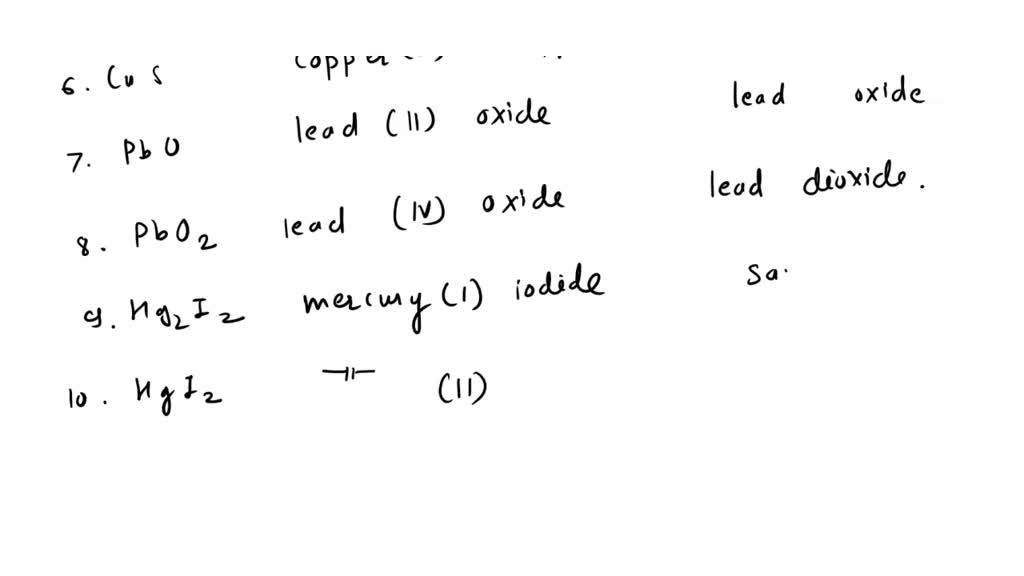 6. Cu S copper
7. PbO lead (II) oxide lead oxide
8. PbO2 lead (IV) oxide lead dioxide.
9. Hg2I2 mercury (I) iodide Sa
10. HgI2 —||— (II)